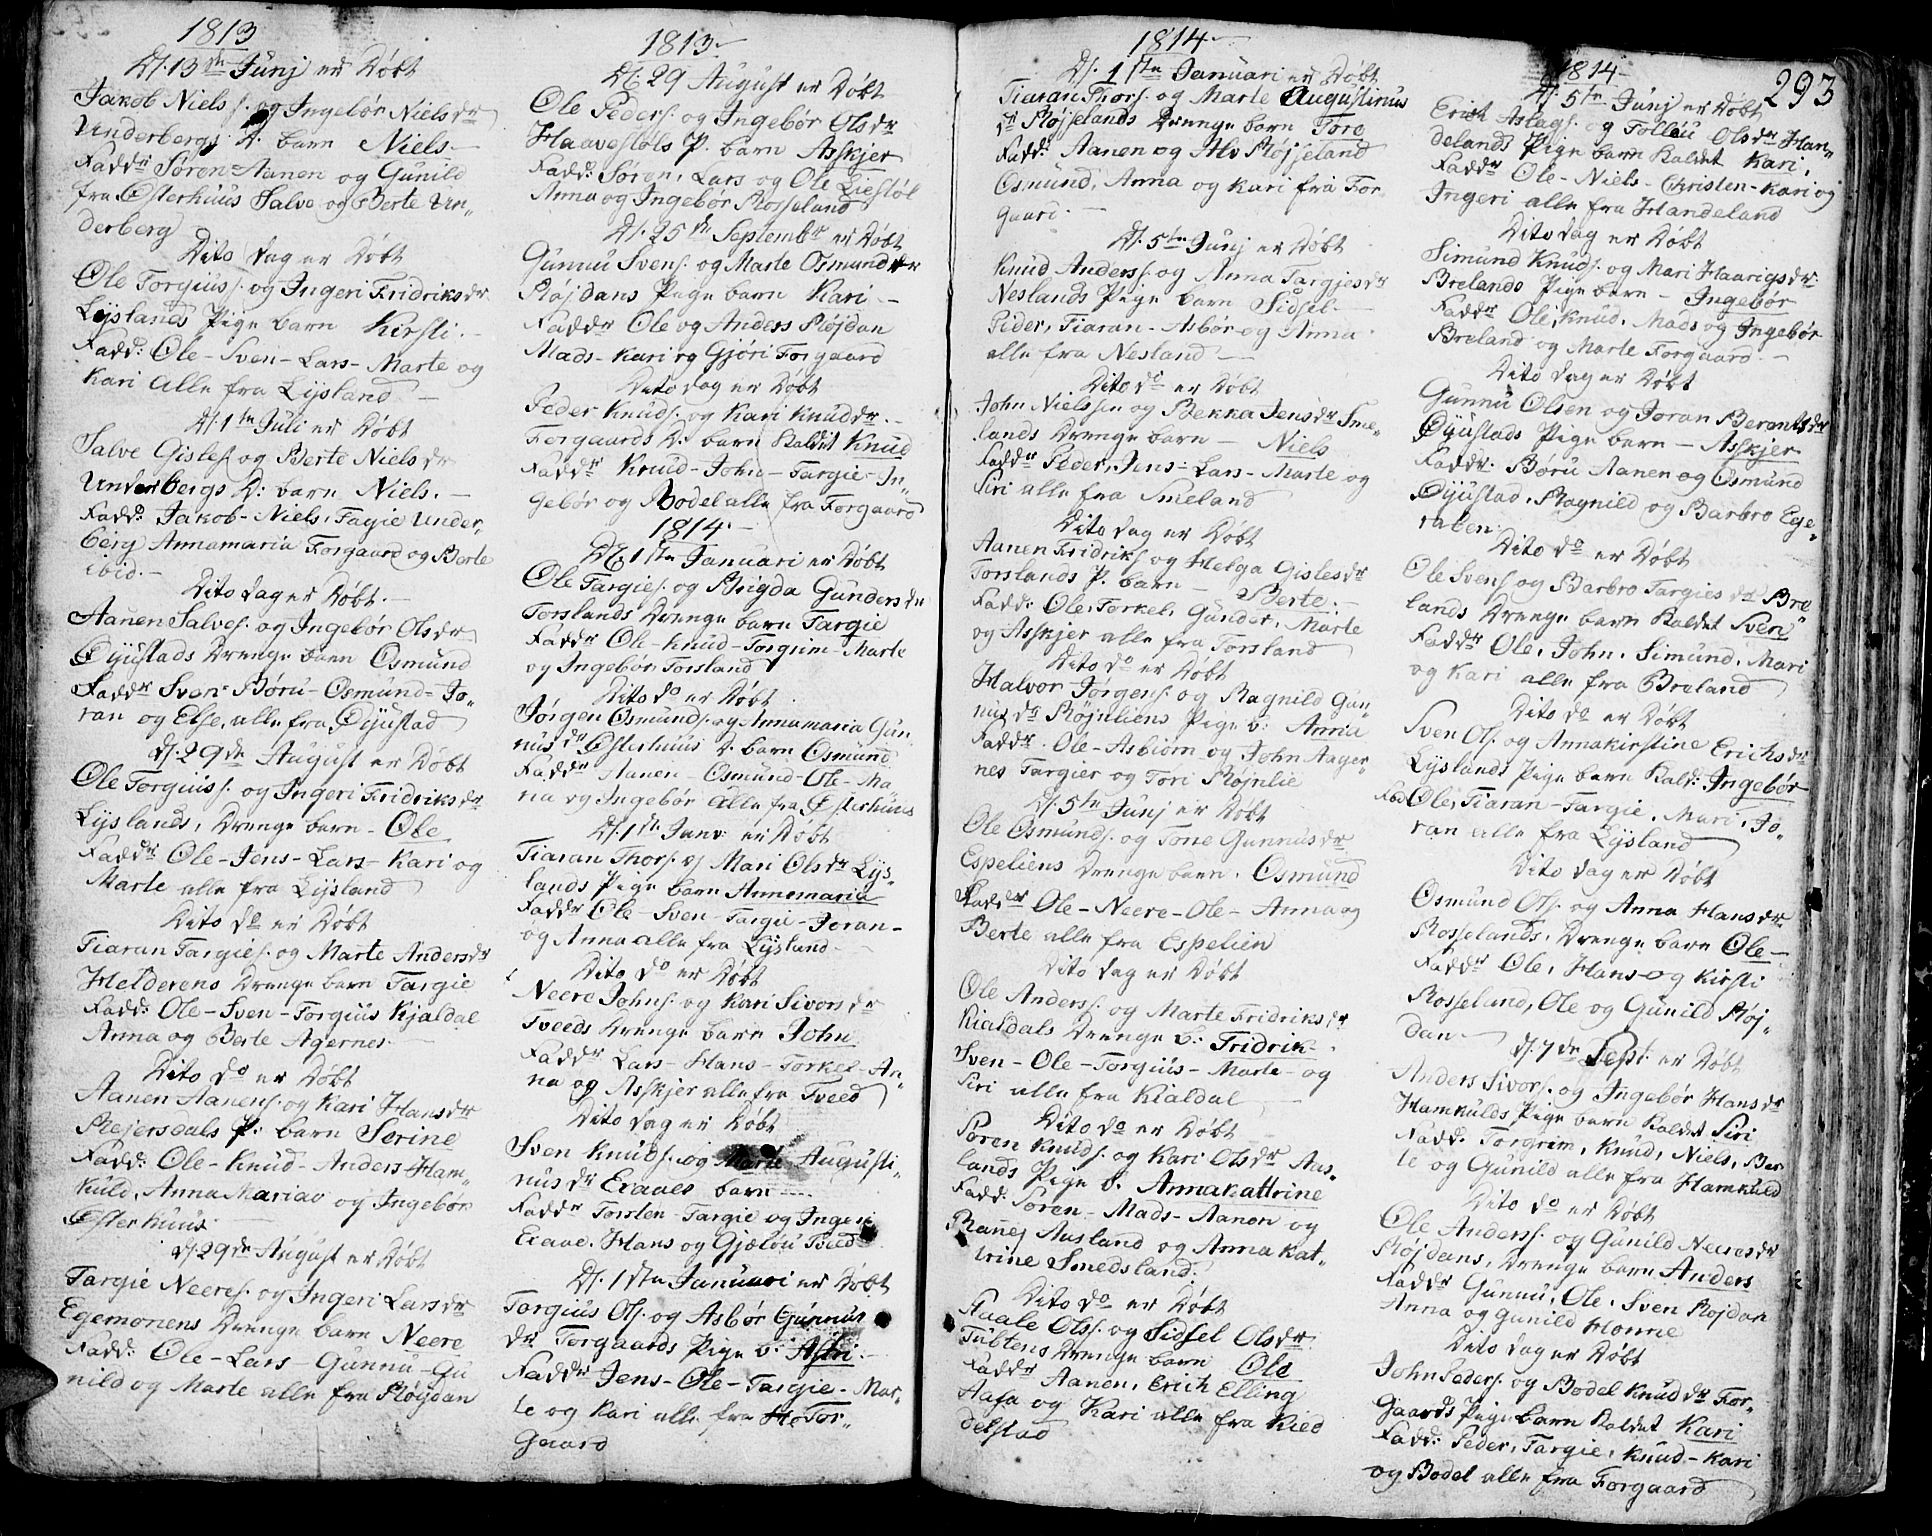 1813
D. 13de Junj er Døbt
Jakob Niels. og Ingebør Nielsdr
Underbergs D. barn Niels.
Faddr Søren Aanen og Gunild
fra Østerhuus Salve og Berte Un„
derberg
Dito dag er Døbt
Ole Torgiuss. og Ingeri Fridriksdr
Lyslands Pige barn Kirsti.
Fadd: Ole - Sven - Lars - Marte og
Kari alle fra Lysland
D. 1te Juli er Døbt
Salve Gisles. og Berte Nielsdr
Underbergs D: barn Niels.
Fadd: Jakob - Niels, Tagie Under„
berg Annamaria Forgaard og Berte
ibid.
Dito dag er Døbt.
Aanen Salves. og Ingebør Olsdr
Øyustads Drenge barn Osmund
Faddr Sven - Børu - Osmund - Jo„
ran og Else, alle fra Øyustad
D. 29de August er Døbt
Ole Torgiuss. og Ingeri Fridriksdr
Lyslands, Drenge barn - Ole
Faddr Ole - Jens - Lars - Kari og
Marte alle fra Lysland
Dito do er Døbt
Tiaran Targies. og Marte Andersdr
Helderens Drenge barn Targie
Fadd: Ole - Sven - Torgius Kjaldal
Anna og Berte Agernes
Dito do er Døbt
Aanen Aanens. og Kari Hansdr
Rejersdals P: barn Serine
Fadd: Ole - Knud - Anders Ham„
kuld, Anna Maria og Ingebør
Østerhuus
D. 29de August er Døbt
Targie Neeres. og Ingeri Larsdr
Egemonens Drenge barn Neere
Fadd: Ole - Lars - Gunnu - Gu
nild og Marte alle fra Røjdan
1813
D. 29 August er Døbt
Ole Peders. og Ingebør Olsdr
Haavestøls P. barn Asskjer
Fadd: Søren, Lars og Ole Liestøl
Anna og Ingebør Rosseland
D. 25de Septembr er Døbt
Gunnu Svens. og Marte Osmundsdr
Røjdans Pige barn Kari -
Faddr Ole og Anders Røjdan
Mads - Kari og Gjøri Forgaard
Dito dag er Døbt
Peder Knuds. og Kari Knuddr.
Forgaards D: barn Kaldet Knud
Faddr Knud - John - Targie - In„
gebør og Bodel alle fra Forgaard
1814
D. 1ste Januari er Døbt
Ole Targies. og Brigda Gundersdr
Torslands Drenge barn Targie
Faddr Ole - Knud - Torgrim - Marte
og Ingebør Torsland
Dito do er Døbt
Jørgen Osmunds. og Annamaria Gun
nusdr Østerhuus D. barn Osmund
Faddr Aanen - Osmund - Ole - Ma„
ria og Ingebør alle fra Østerhuus
D. 1ste Janv: er Døbt
Tiaran Thors. og Mari Olsdr Lys„
lands Pige barn Annemaria
Faddr Ole - Sven - Targie - Joran -
og Anna alle fra Lysland
Dito do er Døbt
Neere Johns. og Kari Sivorsdr
Tveeds Drenge barn John
Faddr Lars - Hans - Torkel - An„
na og Asskjer alle fra Tveed
Dito dag er Døbt
Sven Knuds. og Marte Augusti„
nusdr Eraaes barn
Faddr Torsten - Targie og Ingeri
Eraae. Hans og Gjælou Tveed
D. 1ste Januari er Døbt
Torgius Ols. og Asbør Gunnus
dr Forgaards Pige b: Astri.
Faddr Jens - Ole - Targie - Mar„
te og Kari alle fra For„
gaard
1814
D. 1ste Januari er Døbt
Tiaran Thors. og Marte Augustinus
dr Røjselands Drenge barn Tore
Fadd: Aanen og Alv Røjseland
Osmund, Anna og Kari fra For
gaard.
D. 5te Junj er Døbt
Knud Anderss. og Anna Targiesdr
Neslands Pige barn Sidsel.
Peder, Tiaran - Asbør og Anna
alle fra Nesland
Dito do er Døbt
John Nielssen og Bekka Jensdr Sme„
lands Drenge barn - Niels
Faddr Peder, Jens - Lars - Marte og
Siri alle fra Smeland
Dito dag er Døbt
Aanen Fridriks. og Helga Gislesdr
Torslands P. barn - Berte.
Fadd: Ole, Torkel, Gunder, Marte
og Asskjer alle fra Torsland
Dito do er Døbt
Halvor Jørgens. og Ragnild Gun„
nusdr Røjnliens Pige b: Anna
Faddr. Ole - Asbiørn og John Aager„
nes Targier og Tori Røjnlie
D. 5te Junj er Døbt
Ole Osmunds. og Tone Gunnusdr
Espeliens Drenge barn. Osmund
Faddr Ole - Neere - Ole - Anna og
Berte alle fra Espelien
Dito dag er Døbt
Ole Anderss. og Marte Fridriksdr
Kialdals Drenge b: Fridrik
Sven - Ole - Torgius - Marte - og
Siri alle fra Kialdal
Dito do er Døbt
Søren Knuds. og Kari Olsdr Aus„
lands Pige b. Annakattrine
Fadd: Søren - Mads - Aanen og
Rannej Ausland og Anna Kat„
trine Smedsland.
Dito do er Døbt
Staale Olss. og Sidsel Olsdr
Tubtens Drenge barn Ole
Faddr Aanen, Erich Elling
Hafa og Kari alle fra Kied
delstad
293
1814
D. 5te Junj er Døbt
Erich Aslags. og Tollou Olsdr Han„
delands Pige barn Kaldet Kari.
Faddr Ole - Niels - Christen - Kari og
Ingeri alle fra Handeland
Dito dag er Døbt
Simund Knuds. og Mari Haarigsdr.
Brelands Pige barn - Ingebør
Faddr Ole, Knud, Mads og Ingebør
Breland og Marte Forgaard
Dito dag er Døbt
Gunnu Olsen og Joran Berentsdr
Øyustads Pige barn - Asskjer
Faddr. Børu Aanen og Osmund
Øyustad. Ragnild og Barbro Ege„
raben
Dito do er Døbt
Ole Svens. og Barbro Targiesdr Bre„
lands Drenge barn Kaldet Sven
Faddr Ole, John. Simund, Mari
og Kari alle fra Breland
Dito do er Døbt
Sven Ols. og Annakirstine Erichsdr
Lyslands Pige barn Kald: Ingebør
Fad: Ole, Tiaran - Targie. Mari. Jo„
ran alle fra Lysland
Dito dag er Døbt
Osmund Ols. og Anna Hansdr
Rosselands. Drenge barn Ole
Faddr Ole, Hans og Kirsti
Rosseland, Ole og Gunild Røj„
dan
D. 7de Sept: er Døbt
Anders Sivors. og Ingebør Hansdr
Hamkulds Pige barn Kaldet Siri
Fadd: Torgrim, Knud, Niels, Ber
te og Gunild alle fra Hamkuld
Dito do er Døbt
Ole Anderss. og Gunild Neeresdr
Røjdans, Drenge barn Anders
Faddr Gunnu. Ole. Sven Røjdan
Anna og Gunild Monne
Dito dag er Døbt
John Peders. og Bodel Knuddr For„
gaards Pige barn Kaldet Kari
Fadd: Peder, Targie, Knud - Kari
og Bodel alle fra Forgaard